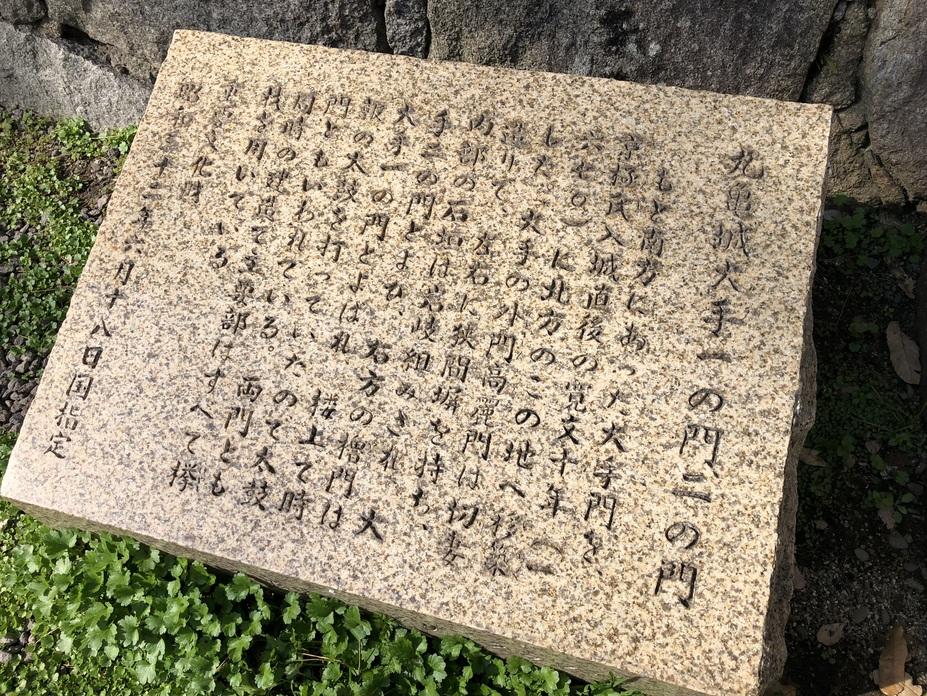 丸亀城大手一の門二の門
もと南方にあった大手門を
京極氏入城直後の寛文十年(一
六七〇)に北方のこの地へ移築
した 大手の外門高麗門は切妻
造りで 左右に狭間塀を持ち、
内部の石垣は岩岐組みされ 大
手二の門とよび、右方の櫓門は
大手一の門とよばれ 楼上で時
報の太鼓を打っていたので太鼓
門ともいわれている。両門とも
同時の建造で主要部はすべて欅
材を用いている
重要文化財
昭和三十二年六月十八日国指定